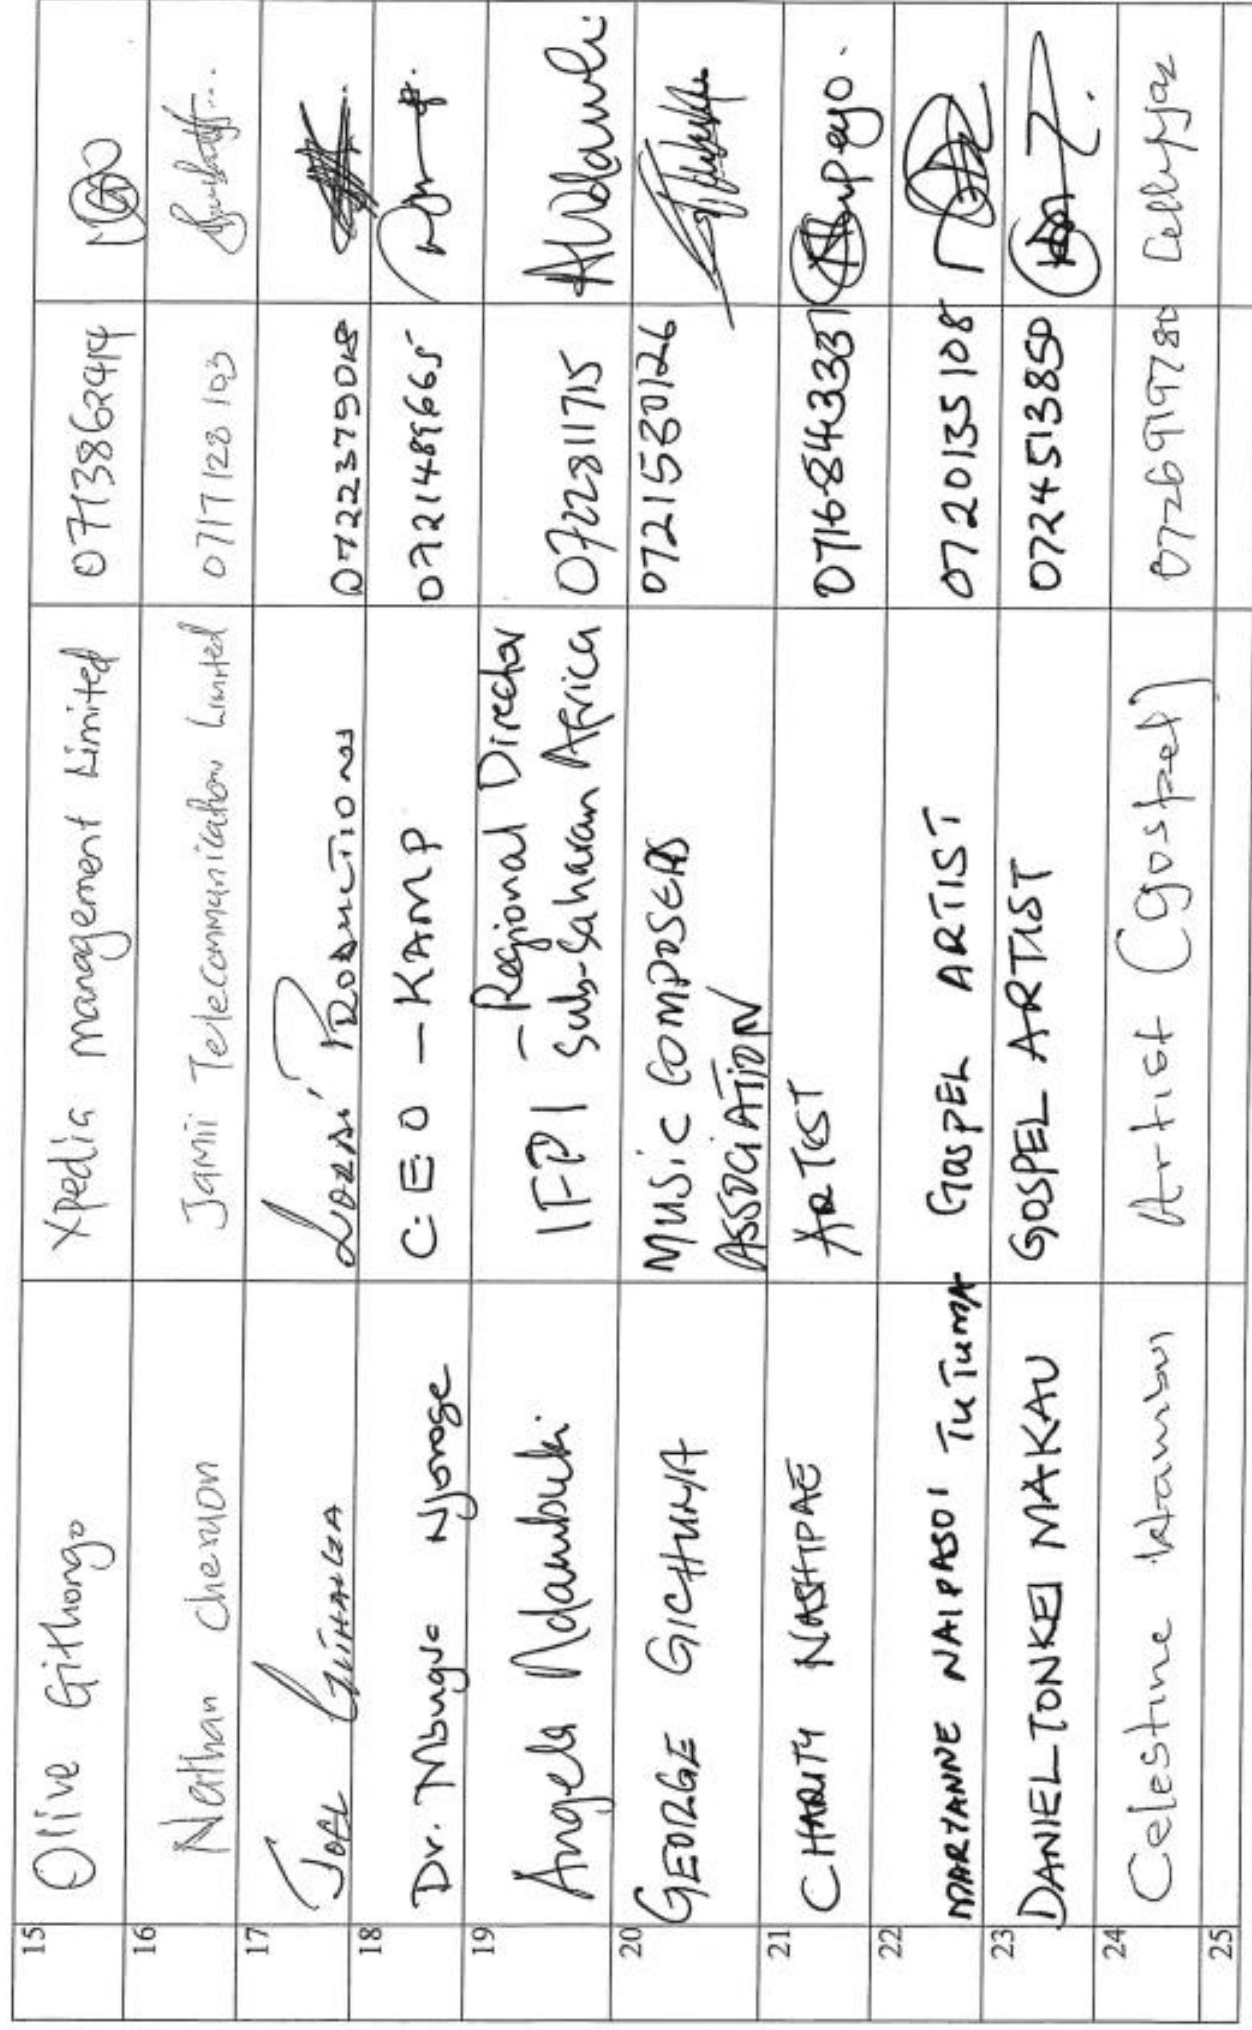 15 Olive Githongo Xpedia management Limited 0713862414
16 Nathan Cheruon Jamii Telecommunication Limited 0717123 103
17 JOEL GITHANGA PRODUCTIONS 0722375018
18 Dr. Mbugua Njoroge C.E.O - KAMP 0721489665
19 Angela Ndambuki IFPI - Regional Director
Sub-Saharan Africa 0722811715 ANdambuki
20 GEORGE GICHUHA MUSIC COMPOSERS
ASSOCIATION 0721580126
21 CHARITY NASHIPAE ARTIST 0716843337
22 MARYANNE NAIPASOI TUTUMA GOSPEL ARTIST 0720135108
23 DANIEL TONKEI MAKAU GOSPEL ARTIST 0724513850
24 Celestine Artist (gospel) 0726919780
25